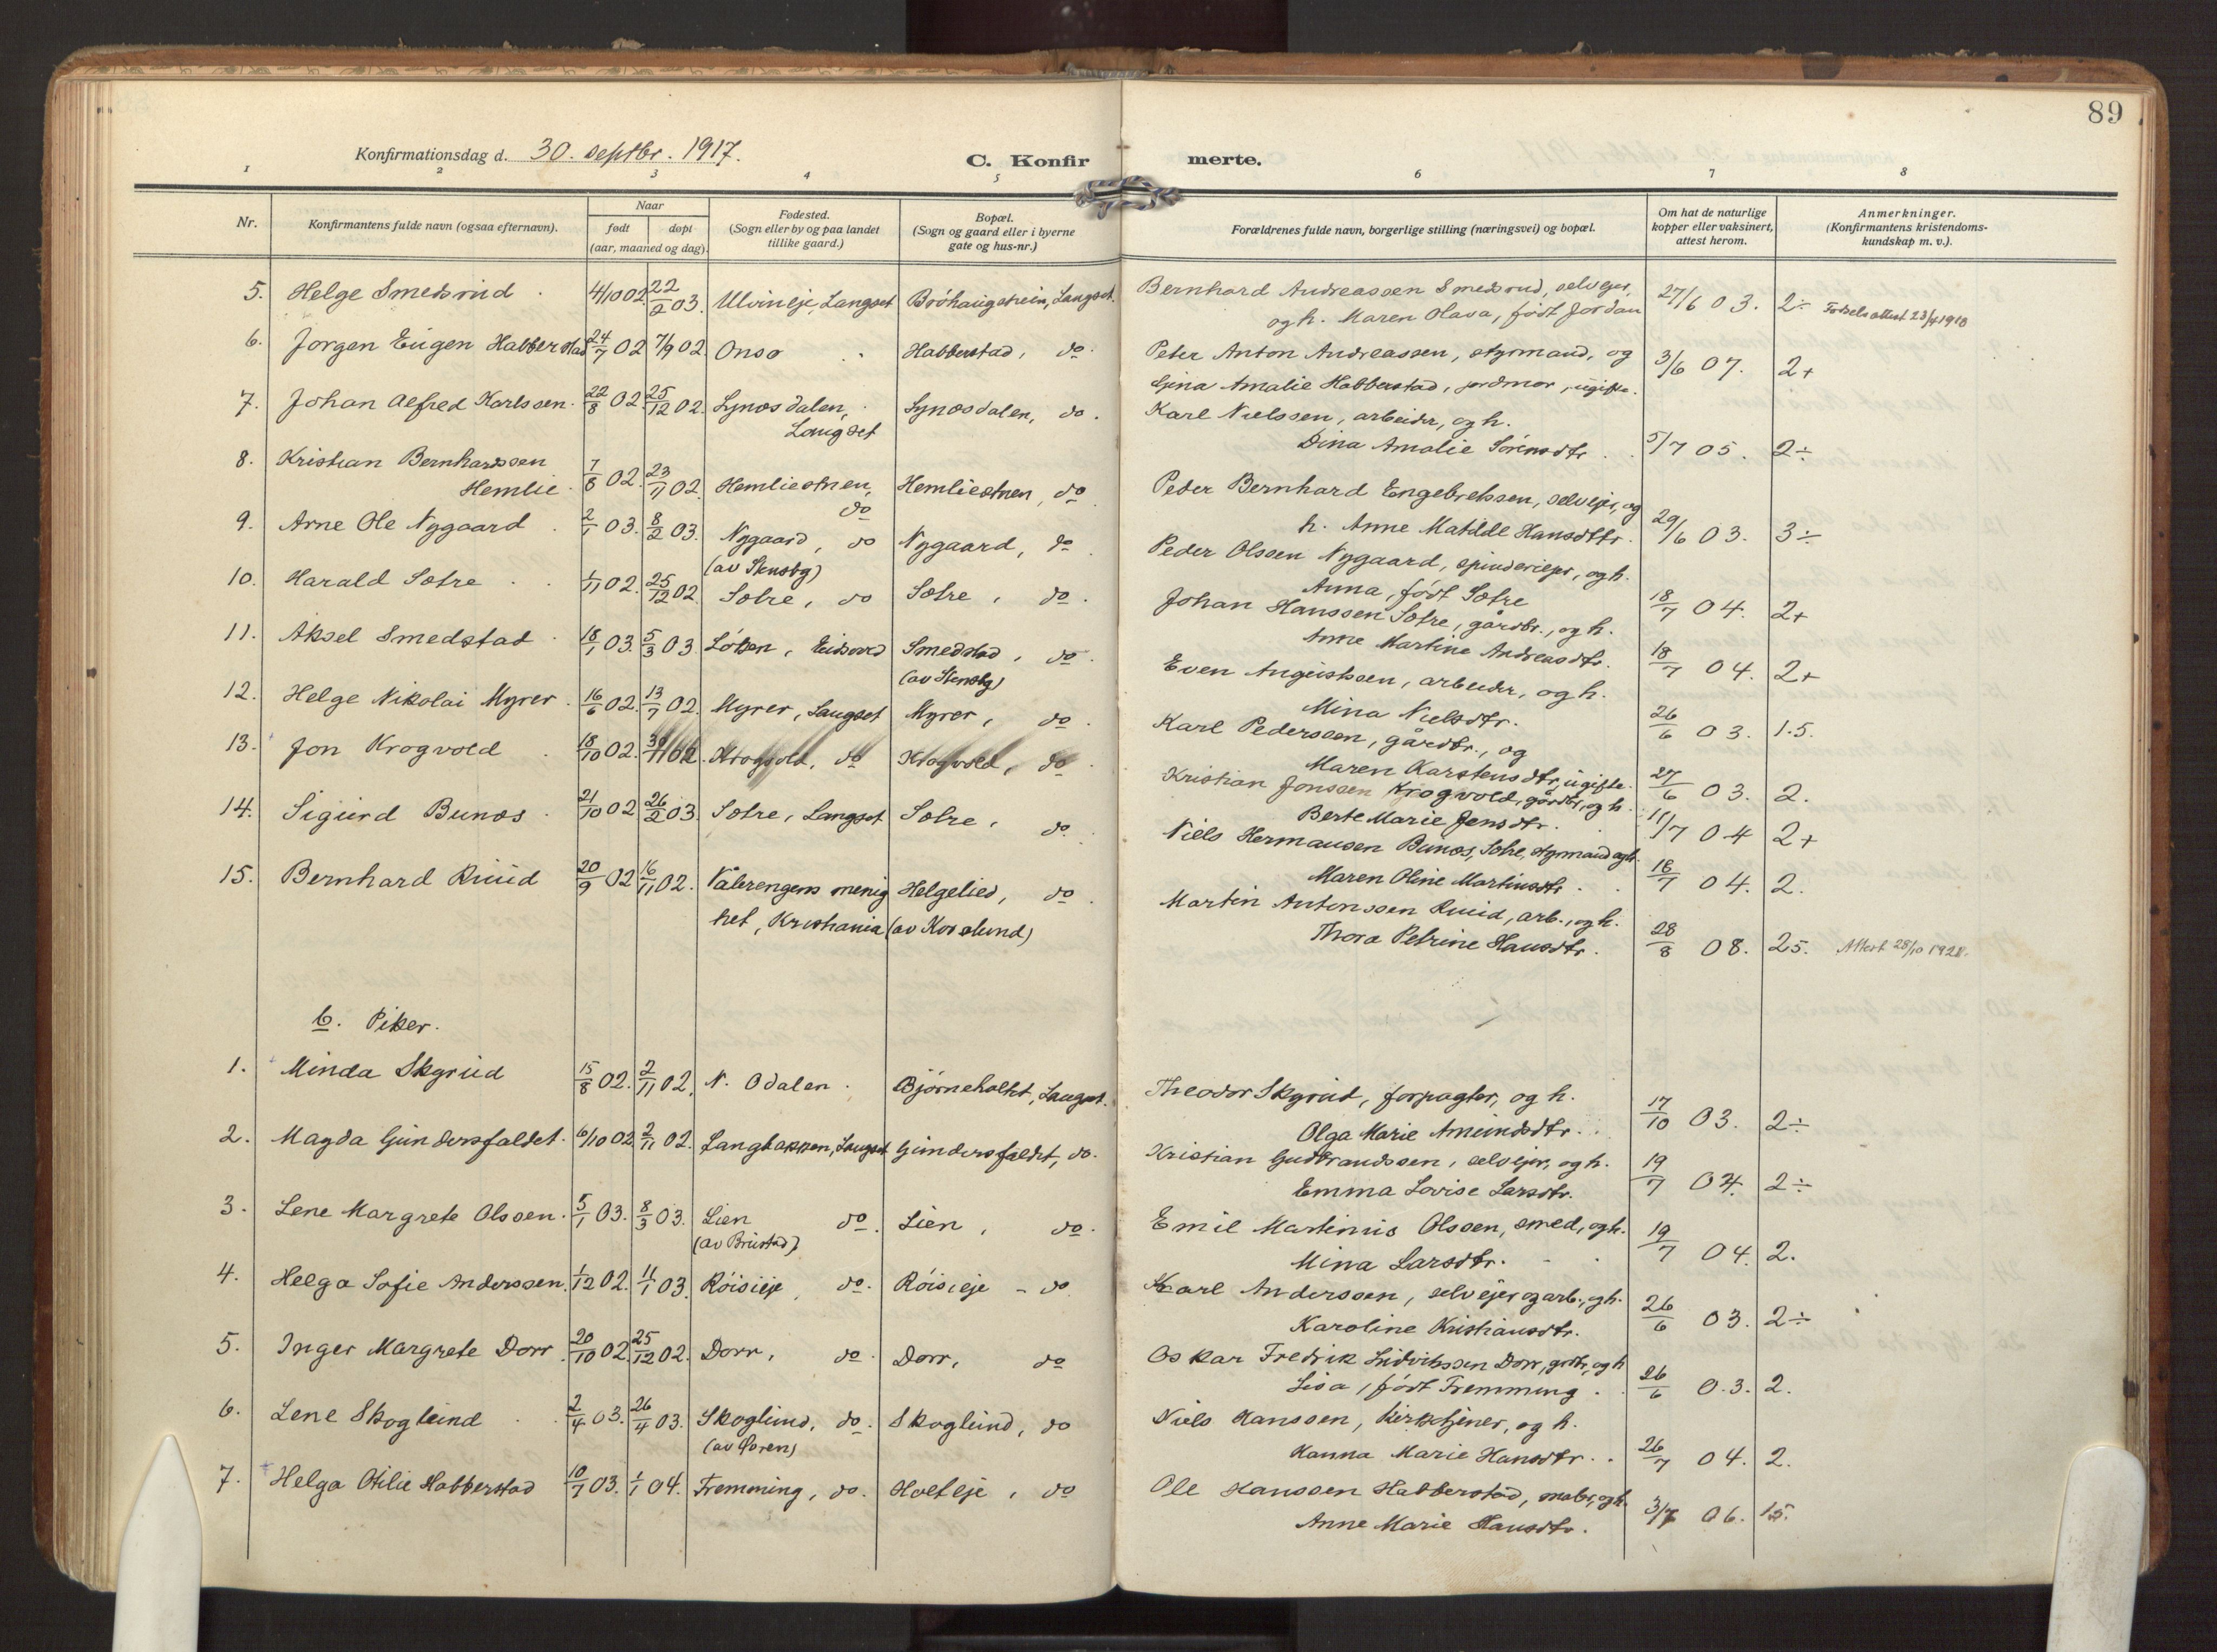 89
Konfirmationsdag d. 30. septbr. 1917.
C. Konfirmerte.
1 2 3 4 5 6 7 8
Nr.
Konfirmantens fulde navn (ogsaa efternavn).
Naar
født døpt
(aar, maaned og dag).
Fødested.
(Sogn eller by og paa landet
tillike gaard.)
Bopæl.
(Sogn og gaard eller i byerne
gate og hus-nr.)
Forældrenes fulde navn, borgerlige stilling (næringsvei) og bopæl.
Om hat de naturlige
kopper eller vaksinert,
attest herom.
Anmerkninger.
(Konfirmantens kristendoms-
kundskap m. v.).
5. Helge Smedsrud 4/10 02 22/2 03. Ulvineje, Langset Langset. Bernhard Andreassen Smedsrud, selveier, 27/6 03. 2÷ Fødselsattest 23/4 1918
og h. Maren Olava, født Jordan
6. Jørgen Eugen Habberstad 24/7 02 7/9 02. Onsø Habberstad, do. Peter Anton Andreassen, styrmand, og 3/6 07. 2+
Gina Amalie Habberstad, jordmor, ugifte.
7. Johan Alfred Karlssen. 22/8 02. 25/12 02. Lynæsdalen, Lynæsdalen, do. Karl Nielssen, arbeider, og h.
Langset Dina Amalie Sørensdtr. 5/7 05. 2÷
8. Kristian Bernhardssen
Hemlie. 7/8 02. 23/11 02. Hemliestuen, do Hemliestuen, do Peder Bernhard Engebretssen, selveier, og
h. Anne Matilde Hansdttr. 29/6 03. 3÷
9. Arne Ole Nygaard 2/1 03. 8/2 03. Nygaard, do Nygaard, do. Peder Olssen Nygaard, spinderieier, og h.
(av Stensbg) Anna, født Sætre 18/7 04. 2+
10. Harald Sætre 1/11 02. 25/12 02. Sætre, do Sætre, do. Johan Hanssen Sætre, gårdbr., og h.
Anne Martine Andreasdtr. 18/7 04. 2+
11. Aksel Smedstad 18/1 03. 5/3 03 Eidsvold Smedstad, do. Even Angeishsen, arbeider, og h.
(av Stensbg) Mina Nielsdtr. 26/6 03. 1.5.
12. Helge Nikolai Myrer. 16/6 02. 13/7 02. Myrer, Langset Myrer, do. Karl Pederssen, gårdbr., og
Maren Karstensdtr, ugifte. 27/6 03. 2.
13. Jon Krogvold 18/10 02. 30/11 02. Krogvold, do Krogvold, do. Kristian Jonssen Krogvold, gårdbr, og h.
Berte Marie Jensdtr. 11/7 04 2+
14. Sigurd Bunæs 21/10 02 26/2 03. Sætre, Langset Sætre, do. Niels Hermansen Bunæs, Sætre, styrmand og h.
Maren Oline Martinsdtr. 18/7 04. 2.
15. Bernhard Ruud 20/9 02 16/11 02. Vålerengens menig Helgelied, do. Martin Antonssen Ruud, arb., og h.
het, Kristiania (av Korslund) Thora Petrine Hansdtr. 28/8 08. 25. Attest 28/10 1921.
b. Piker.
1. Minda Skyrud 15/8 02. 2/11 02. N. Odalen. Bjørneholtet, Langset. Theodor Skyrud, forpagter, og h.
Olga Marie Amundsdtr. 17/10 03. 2÷
2. Magda Gundersfaldet. 6/10 02. 2/11 02. Langbakken, Langset Gundersfaldet, do. Kristian Gudbrandssen, selveier, og h.
Emma Lovise Larsdtr. 19/7 04. 2÷
3. Lene Margrete Olssen. 5/1 03. 8/3 03. Lien do. Lien, do. Emil Martinius Olssen, smed, og h.
(av Brustad) Mina Larsdtr. 19/7 04. 2.
4. Helga Sofie Anderssen. 1/12 02. 11/1 03. Røisieje, do. Røisieje - do Karl Anderssen, selveier og arb., og h.
Karoline Kristiansdtr. 26/6 03. 2÷
5. Inger Margrete Dorr. 20/10 02. 25/12 02. Dorr, do. Dorr, do Oskar Fredrik Ludvikssen Dorr, grdbr, og h
Lisa, født Fremming. 26/6 03. 2.
6. Lene Skoglund 2/4 03. 26/4 03. Skoglund, do. Skoglund, do Niels Hanssen, kirketjener, og h.
Hanna Marie Hansdtr. 26/7 04. 2.
7. Helga Otilie Habberstad 10/7 03. 1/1 04. Fremming, do. Holteje, do Ole Hanssen Habberstad, maler, og h.
Anne Marie Hansdtr. 06. 15.